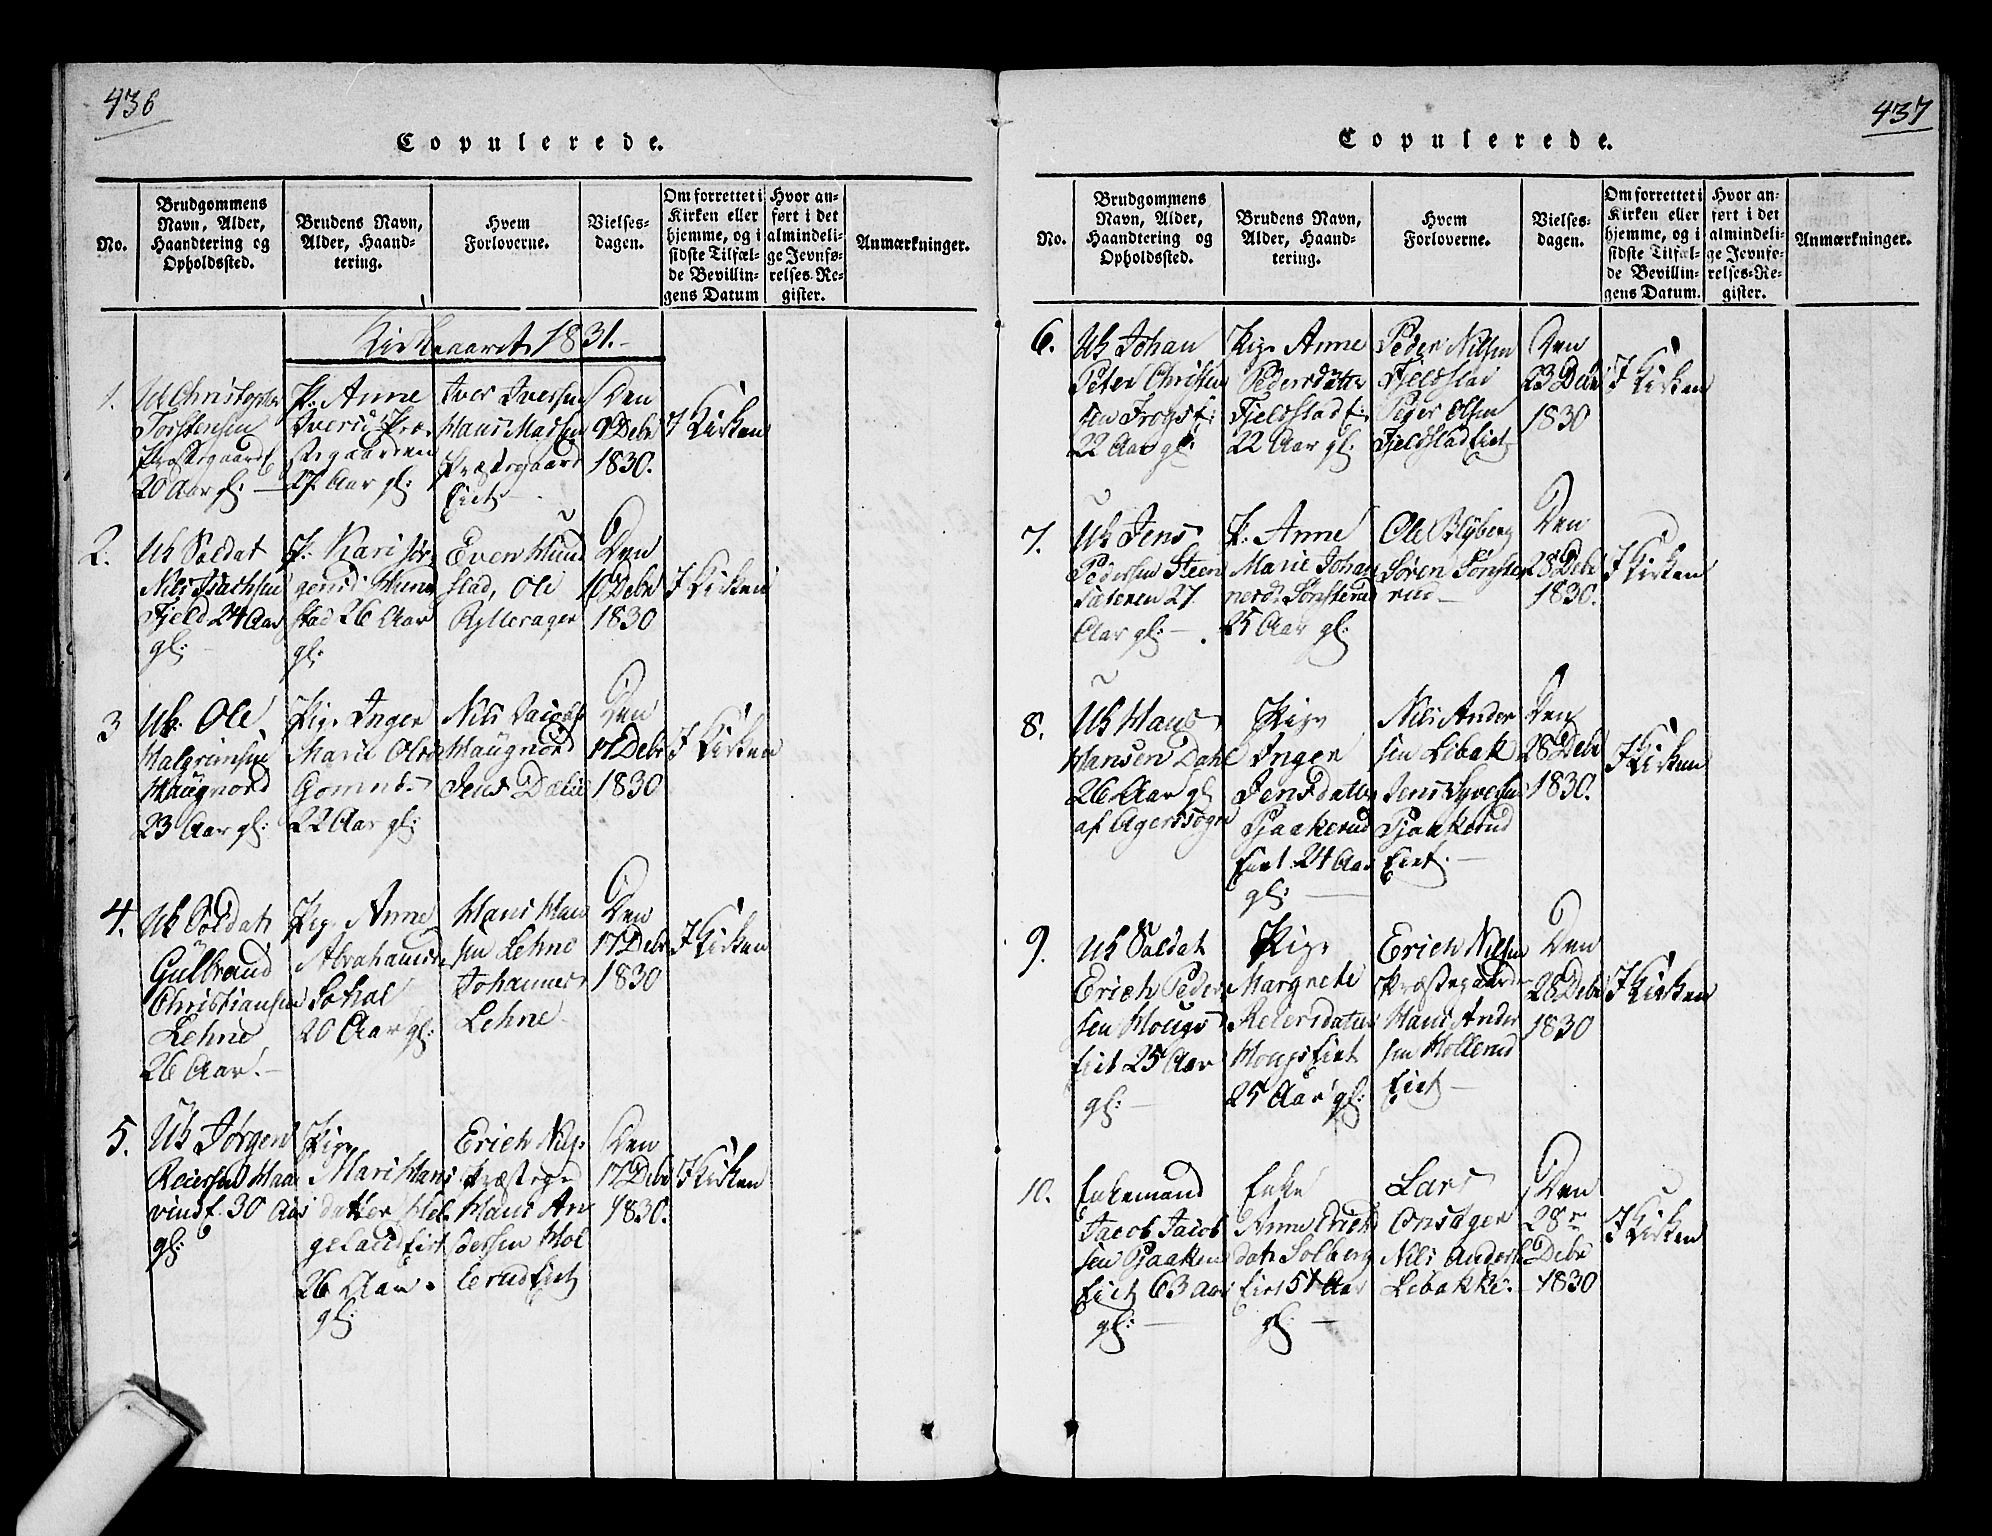 436
Copulerede.
No.
Brudgommens
Navn, Alder,
Haandtering og
Opholdssted.
Brudens Navn,
Alder, Haand-
tering.
Hvem
Forloverne.
Vielses-
dagen.
Om forrettet i
Kirken eller
hjemme, og i
sidste Tilfæl-
de Bevillin-
gens Datum
Hvor an-
ført i det
almindeli-
ge Jevnfø-
relses-Re-
gister.
Anmærkninger.
Kirkeaaret 1831.
1.
Uk Christopher
Torstensen
Præstegaard
20 Aar gl:
P. Anne
Iversd Præ-
stegaarden
27 Aar gl:
Iver Iversen
Hans Madsen
Præstegaard
Eiet
Den
9 Debr
1830.
I Kirken
2.
Uk Soldat
Nils Isachsen
Fjeld 24 Aar
gl:
P. Kari Jør-
gensd: Mun
stad 26 Aar
gl:
Even Mun
stad, Ole
Rytterager
Den
10 Debr
1830
I Kirken
3
Uk. Ole
Halgrimsen
Haugnord
23 Aar gl:
Pige Inger
Marie Olsd
Gomnes
22 Aar gl:
Nils Jacobs
Haugnord
Jens Dælie
Den
17 Debr
1830
I Kirken
4.
Uk Soldat
Gulbrand
Christiansen
Lehne
26 Aar.
Pig. Anne
Abrahamsd
Sohol
20 Aar gl:
Hans Han
sen Lehne
Johannes
Lehne
Den
17 Debr
1830
I Kirken
5.
Uk Jørgen
Reiersen Haa
vind 30 Aar
gl:
Pige
Mari Hans
datter Hel-
geland Eiet
26 Aar.
gl:
Erich Nils
Præstegrd
Hans An
dersen Mol
lerud Eiet
Den
17 Debr
1830.
I Kirken
437
Copulerede.
No.
Brudgommens
Navn, Alder,
Haandtering og
Opholdssted.
Brudens Navn,
Alder, Haand-
tering.
Hvem
Forloverne.
Vielses-
dagen.
Om forrettet i
Kirken eller
hjemme, og i
sidste Tilfæl-
de Bevillin-
gens Datum.
Hvor an-
ført i det
almindeli-
ge Jevnfø-
relses-Re-
gister.
Anmærkninger.
6.
Uk Johan
Peter Christen
sen Frogs E:
22 Aar gl:
Pige Anne
Pedersdatter
Fjeldstad E:
22 Aar gl:
Peder Nilsen
Fjeldstad
Peder Olsen
Fjeldstad Eiet
Den
23 Debr
1830
I Kirken
7.
Uk Jens
Pedersen Steen
sæteren 27
Aar gl:
P. Anne
Marie Johan
nesd: Sønsterud
25 Aar gl:
Ole Blyberg
Søren Sønste
rud
Den
28 Debr
1830.
I Kirken
8.
Uk Hans
Hansen Dahl
26 Aar gl
af Agerssogn
Pige
Inger
Jensdatter
Pjaakerud
Eiet 24 Aar
gl:
Nils Ander
sen Libak
Jens Syvers
Pjaakerud
Eiet.
Den
28 Debr
1830.
I Kirken
9.
Uk Soldat
Erich Peder
sen Hougs
Eiet 25 Aar
gl:
Pige
Margrete
Reiersdatter
Hougs Eiet
25 Aar gl:
Erich Nilsen
Præstegaard
Hans Ander
sen Mollerud
Eiet
Den
28 Debr
1830
I Kirken
10.
Enkemand
Jacob Jacob
sen Pjaaken
Eiet 63 Aar
gl:
Enke
Anne Erich
dat: Solberg
Eiet 51 Aar
gl:
Lars
Onsager
Nils Anders
Libakke.
Den
28
Debr
1830
I Kirken